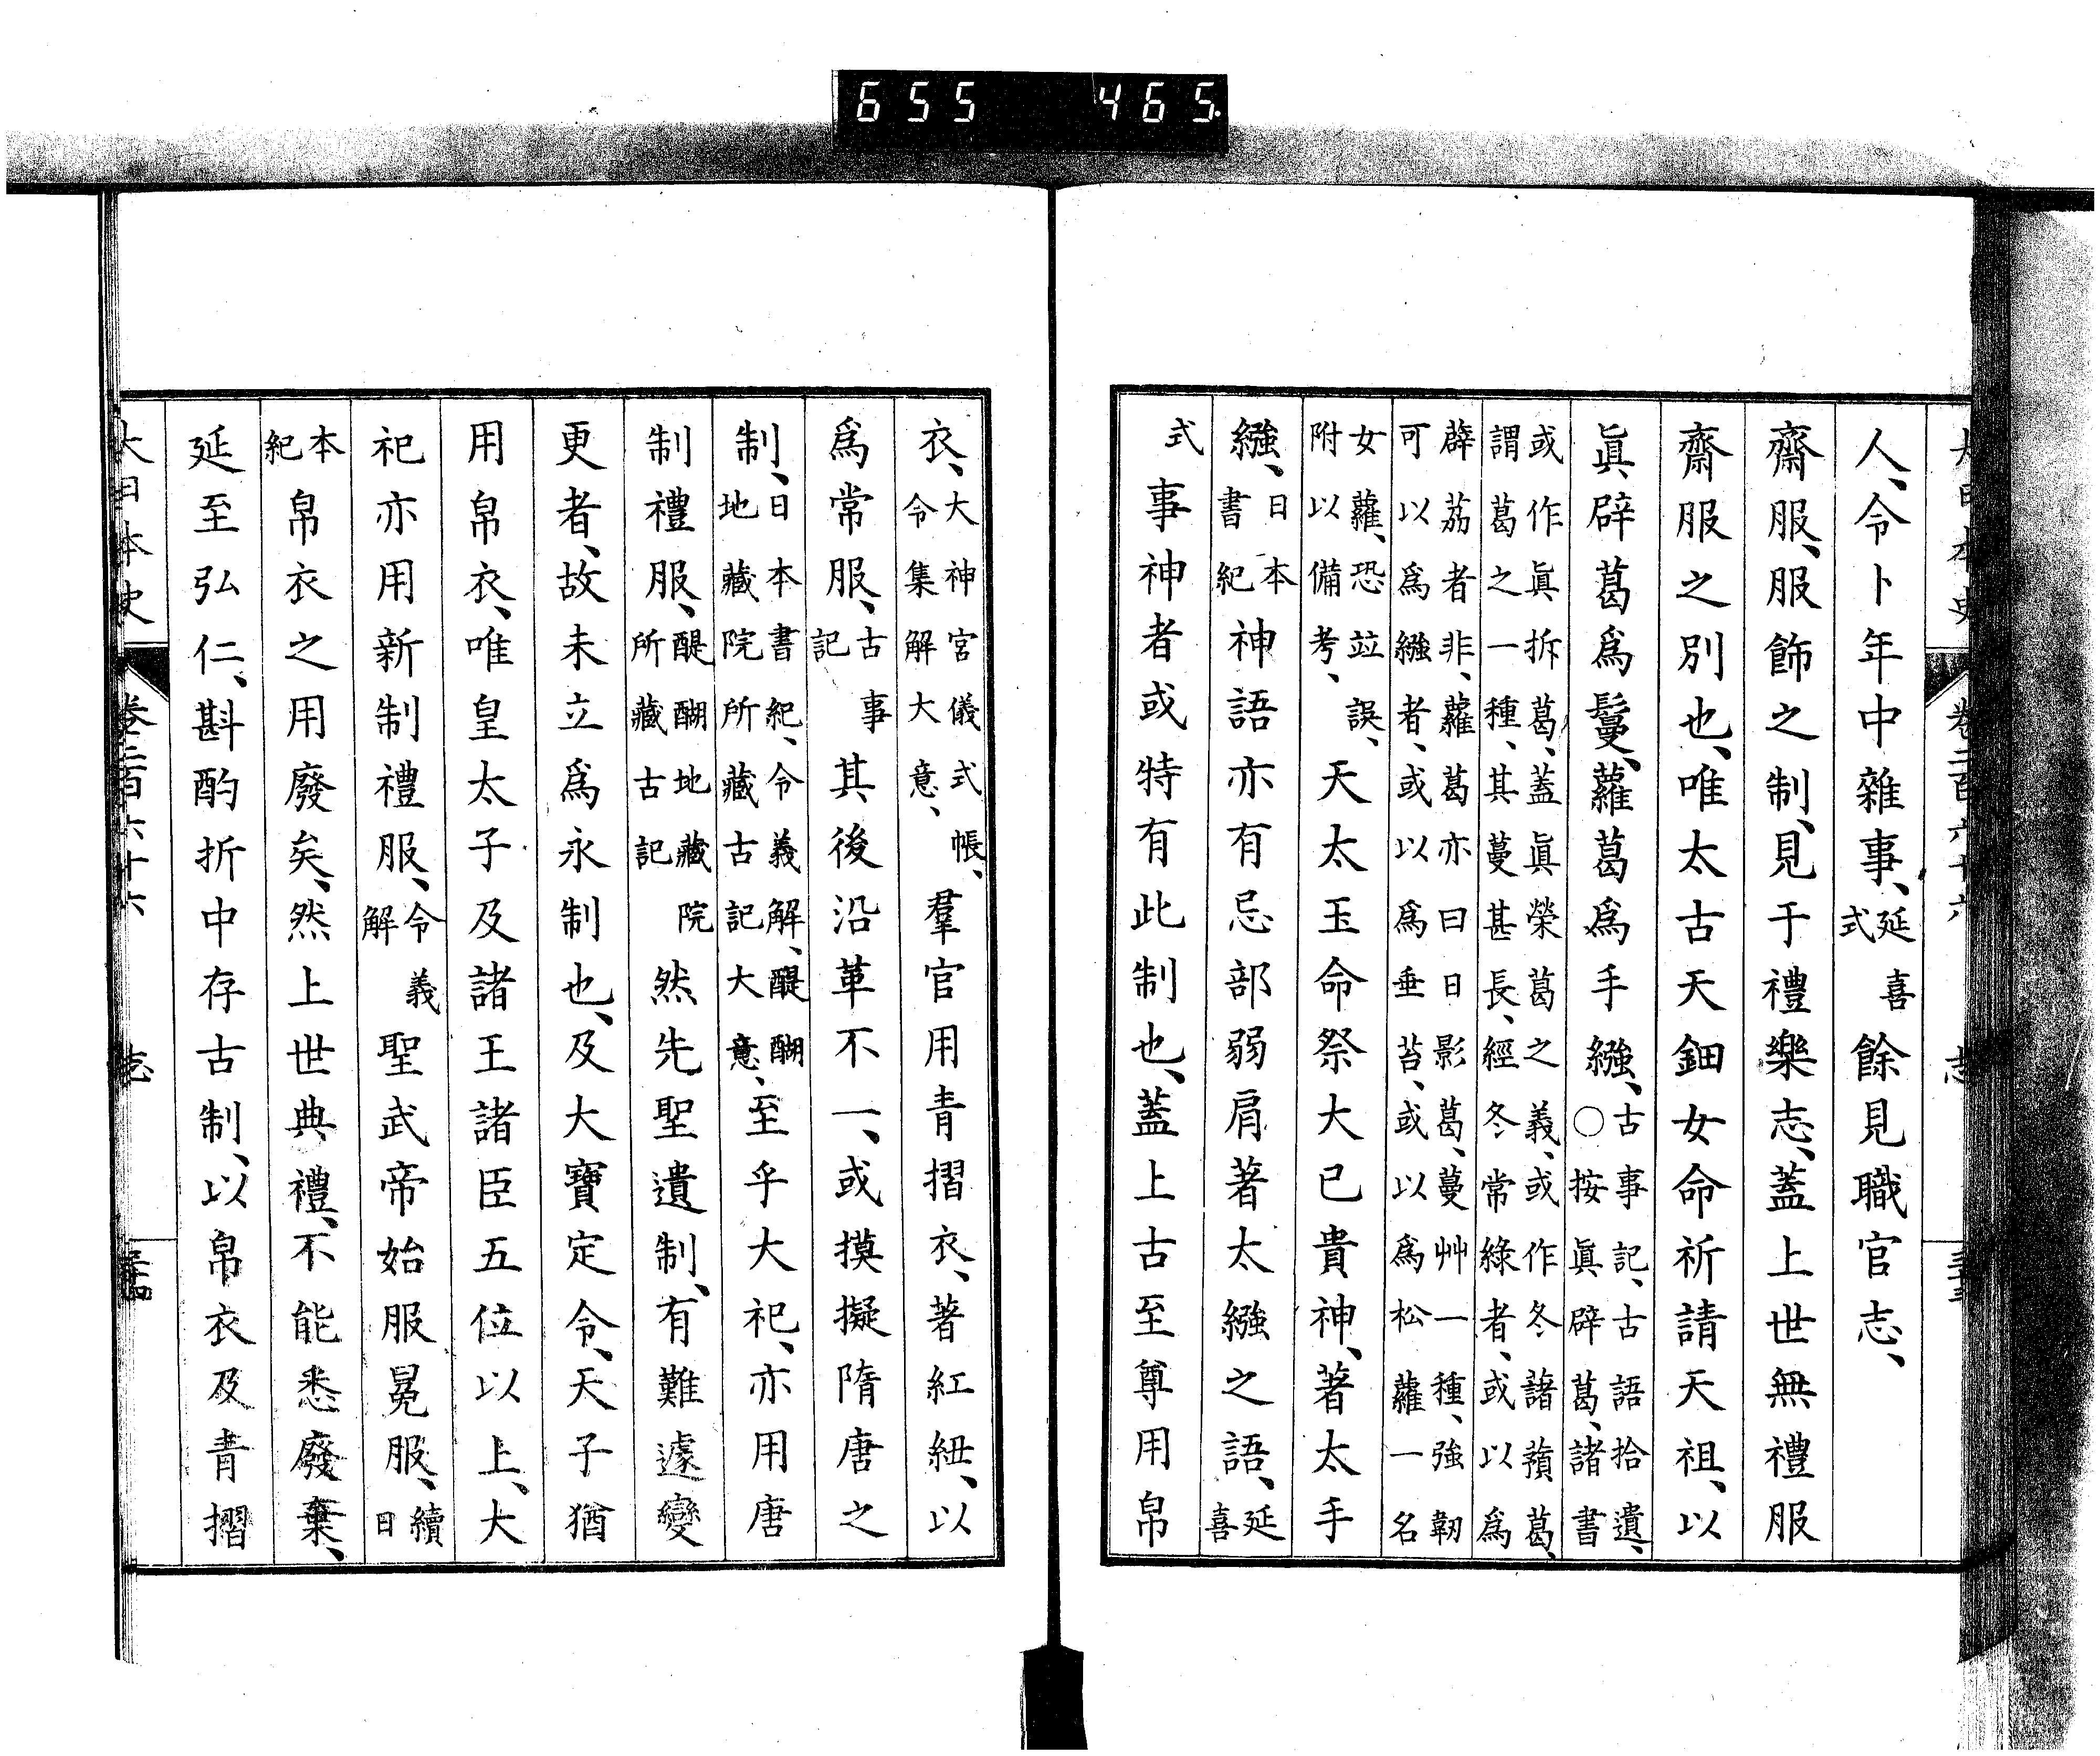 655 465
大日本史 卷二百六十六 志 三十三
人、令卜年中雜事、延喜式餘見職官志、
齋服、服飾之制、見于禮樂志、蓋上世無禮服
齋服之別也、唯太古天鈿女命祈請天祖、以
眞辟葛爲鬘、蘿葛爲手繦、古事記、古語拾遺、〇按眞辟葛、諸書
或作眞拆葛、蓋眞榮葛之義、或作冬諸蘋葛、謂葛之一種、其蔓甚長、經冬常綠者、或以爲
薜荔者非、蘿葛亦曰日影葛、蔓艸一種、強韌可以爲繦者、或以爲垂苔、或以爲松蘿一名
女蘿、恐竝誤、附以備考、天太玉命祭大已貴神、著太手
繦、日本書紀神語亦有忌部弱肩著太繦之語、延喜
式事神者或特有此制也、蓋上古至尊用帛
衣、大神宮儀式帳、令集解大意、羣官用青摺衣、著紅紐、以
爲常服、古事記其後沿革不一、或摸擬隋唐之
制、日本書紀、令義解、醍醐地藏院所藏古記大意、至乎大祀、亦用唐
制禮服、醍醐地藏院所藏古記然先聖遺制、有難遽變
更者、故未立爲永制也、及大寶定令、天子猶
用帛衣、唯皇太子及諸王諸臣五位以上、大
祀亦用新制禮服、令義解聖武帝始服冕服、續日
本紀帛衣之用廢矣、然上世典禮、不能悉廢棄、
延至弘仁、斟酌折中存古制、以帛衣及青摺
大日本史 卷二百六十六 志 三十四